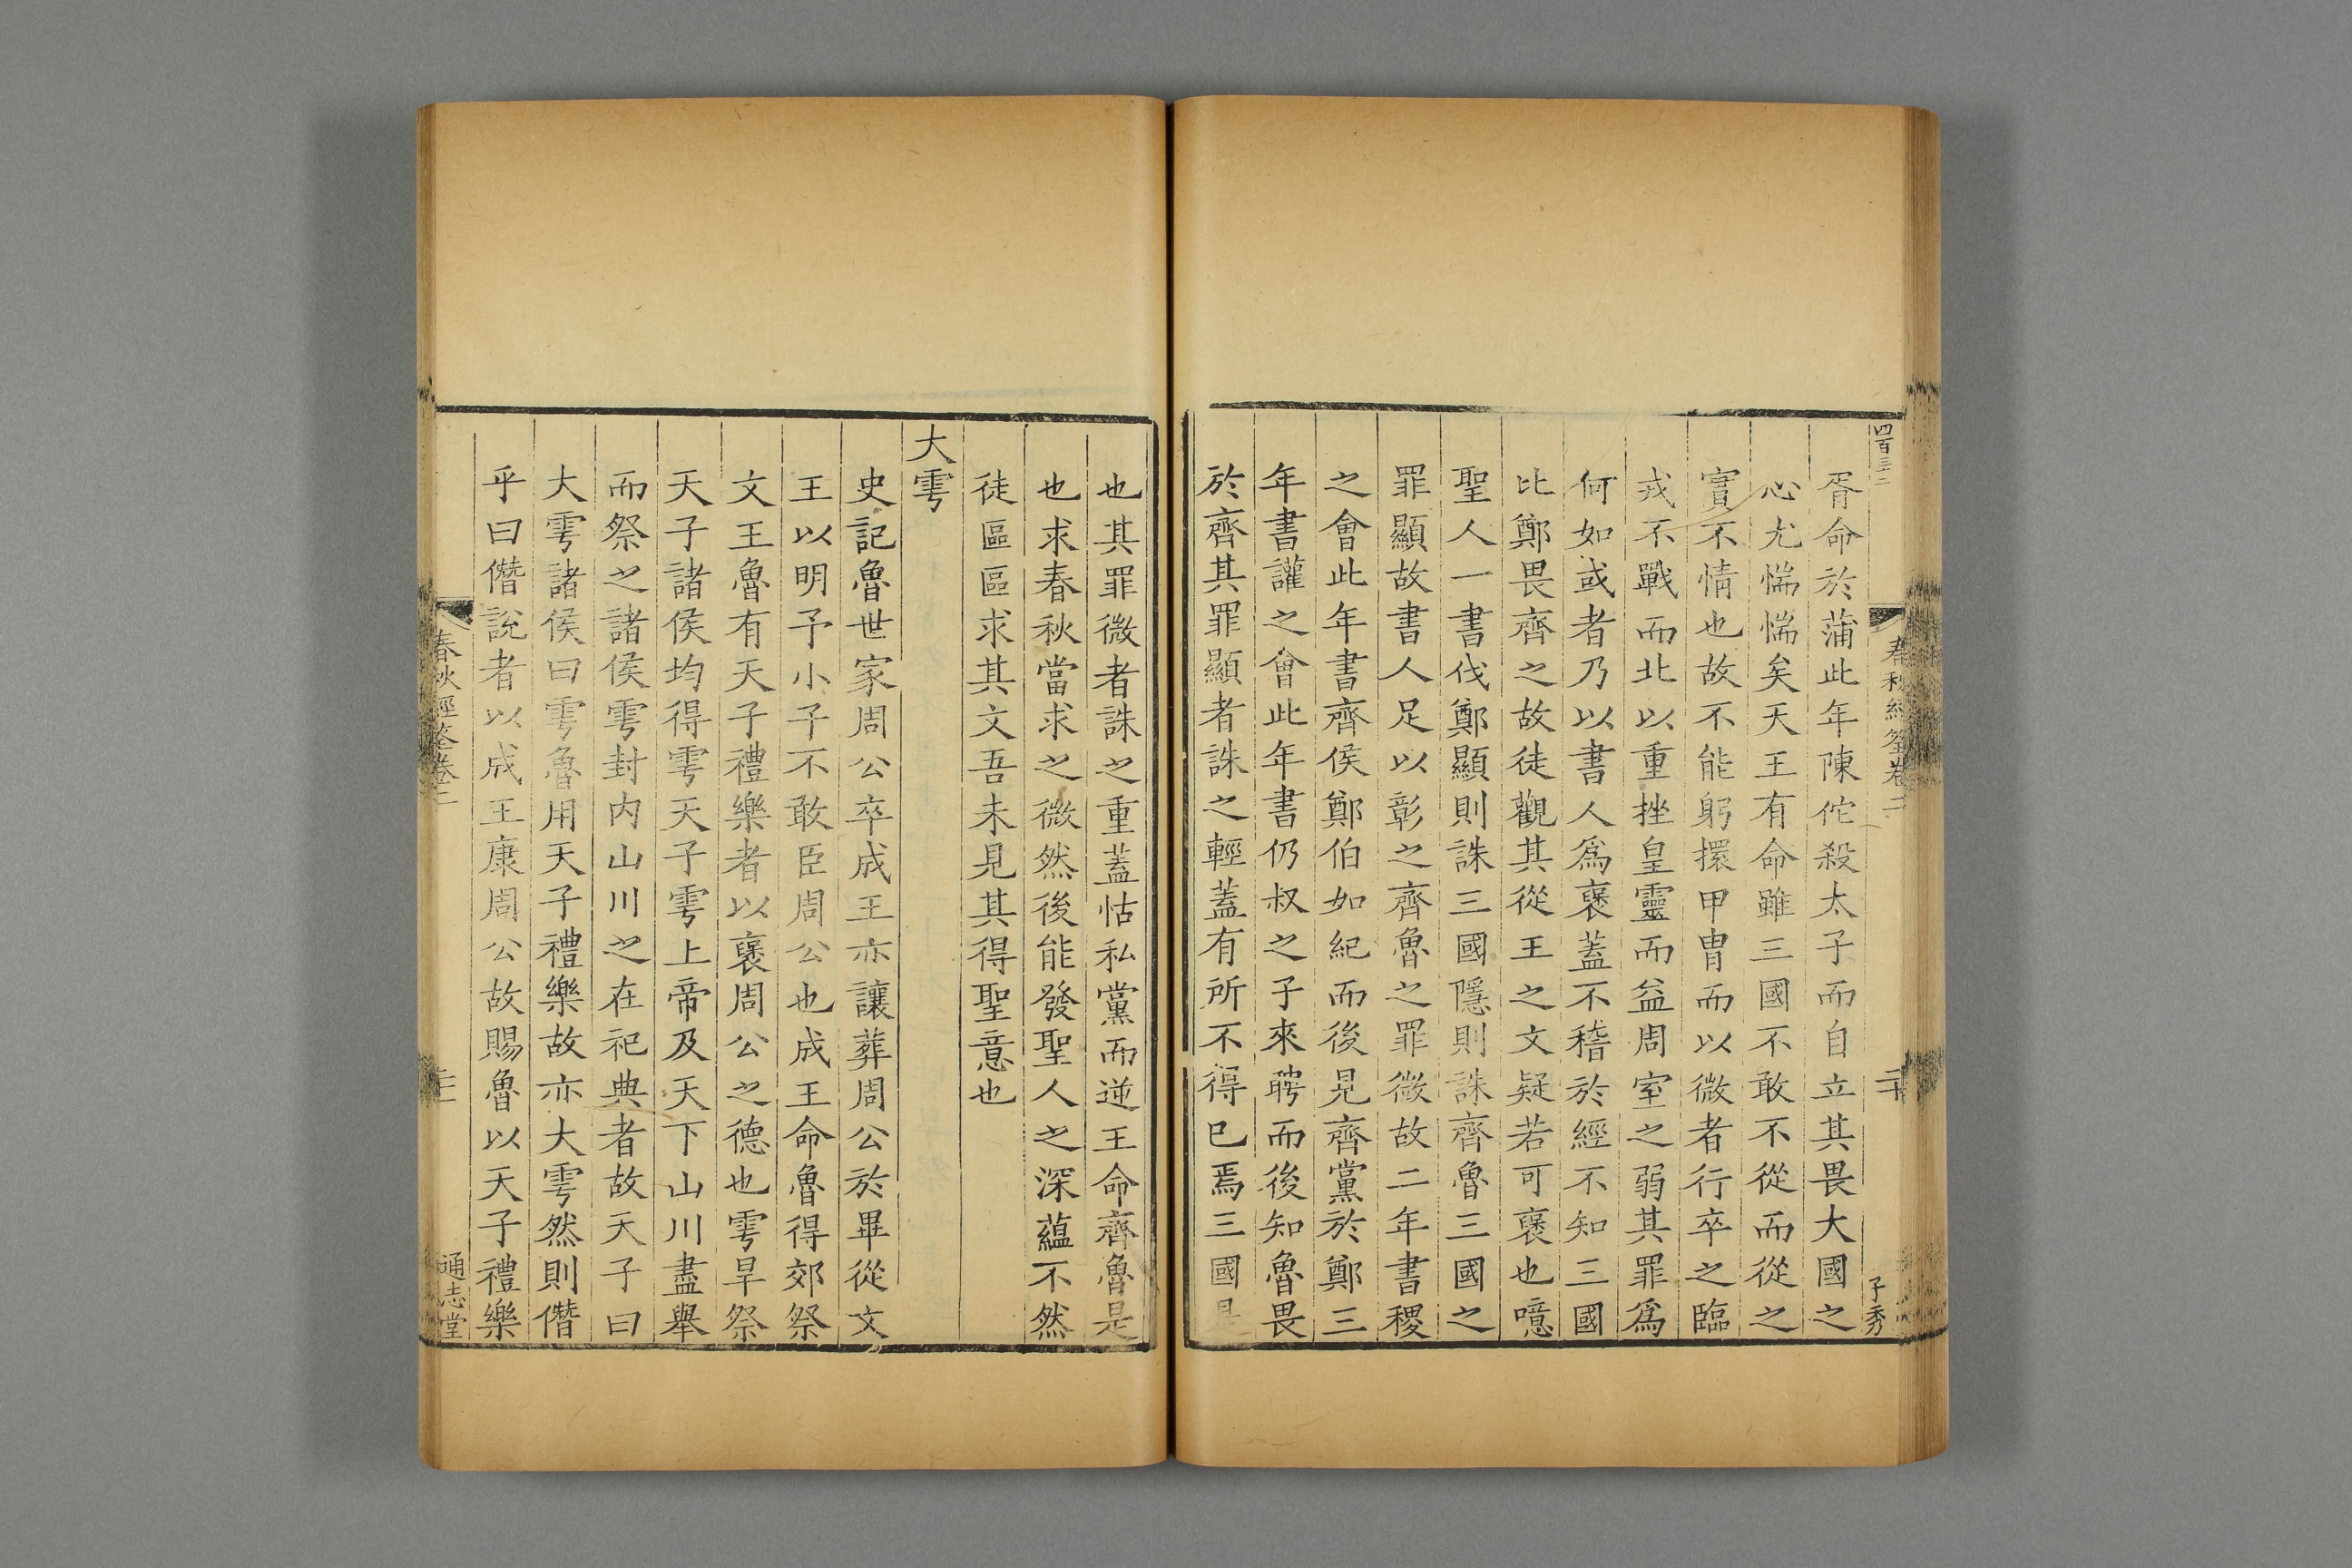 四百三二
春秋經筌卷二
二十
子秀
胥命於蒲此年陳佗殺太子而自立其畏大國之
心尤惴惴矣天王有命雖三國不敢不從而從之
實不情也故不能躬擐甲冑而以微者行卒之臨
戎不戰而北以重挫皇靈而益周室之弱其罪爲
何如或者乃以書人爲襃蓋不稽於經不知三國
比鄭畏齊之故徒觀其從王之文疑若可襃也噫
聖人一書伐鄭顯則誅三國隱則誅齊魯三國之
罪顯故書人足以彰之齊魯之罪微故二年書稷
之會此年書齊侯鄭伯如紀而後見齊黨於鄭三
年書讙之會此年書仍叔之子來聘而後知魯畏
於齊其罪顯者誅之輕蓋有所不得已焉三國是
也其罪微者誅之重蓋怙私黨而逆王命齊魯是
也求春秋當求之微然後能發聖人之深蘊不然
徒區區求其文吾未見其得聖意也
大雩
史記魯世家周公卒成王亦讓葬周公於畢從文
王以明予小子不敢臣周公也成王命魯得郊祭
文王魯有天子禮樂者以襃周公之德也雩旱祭
天子諸侯均得雩天子雩上帝及天下山川盡舉
而祭之諸侯雩封内山川之在祀典者故天子曰
大雩諸侯曰雩魯用天子禮樂故亦大雩然則僭
乎曰僭說者以成王康周公故賜魯以天子禮樂
春秋經筌卷二
通志堂